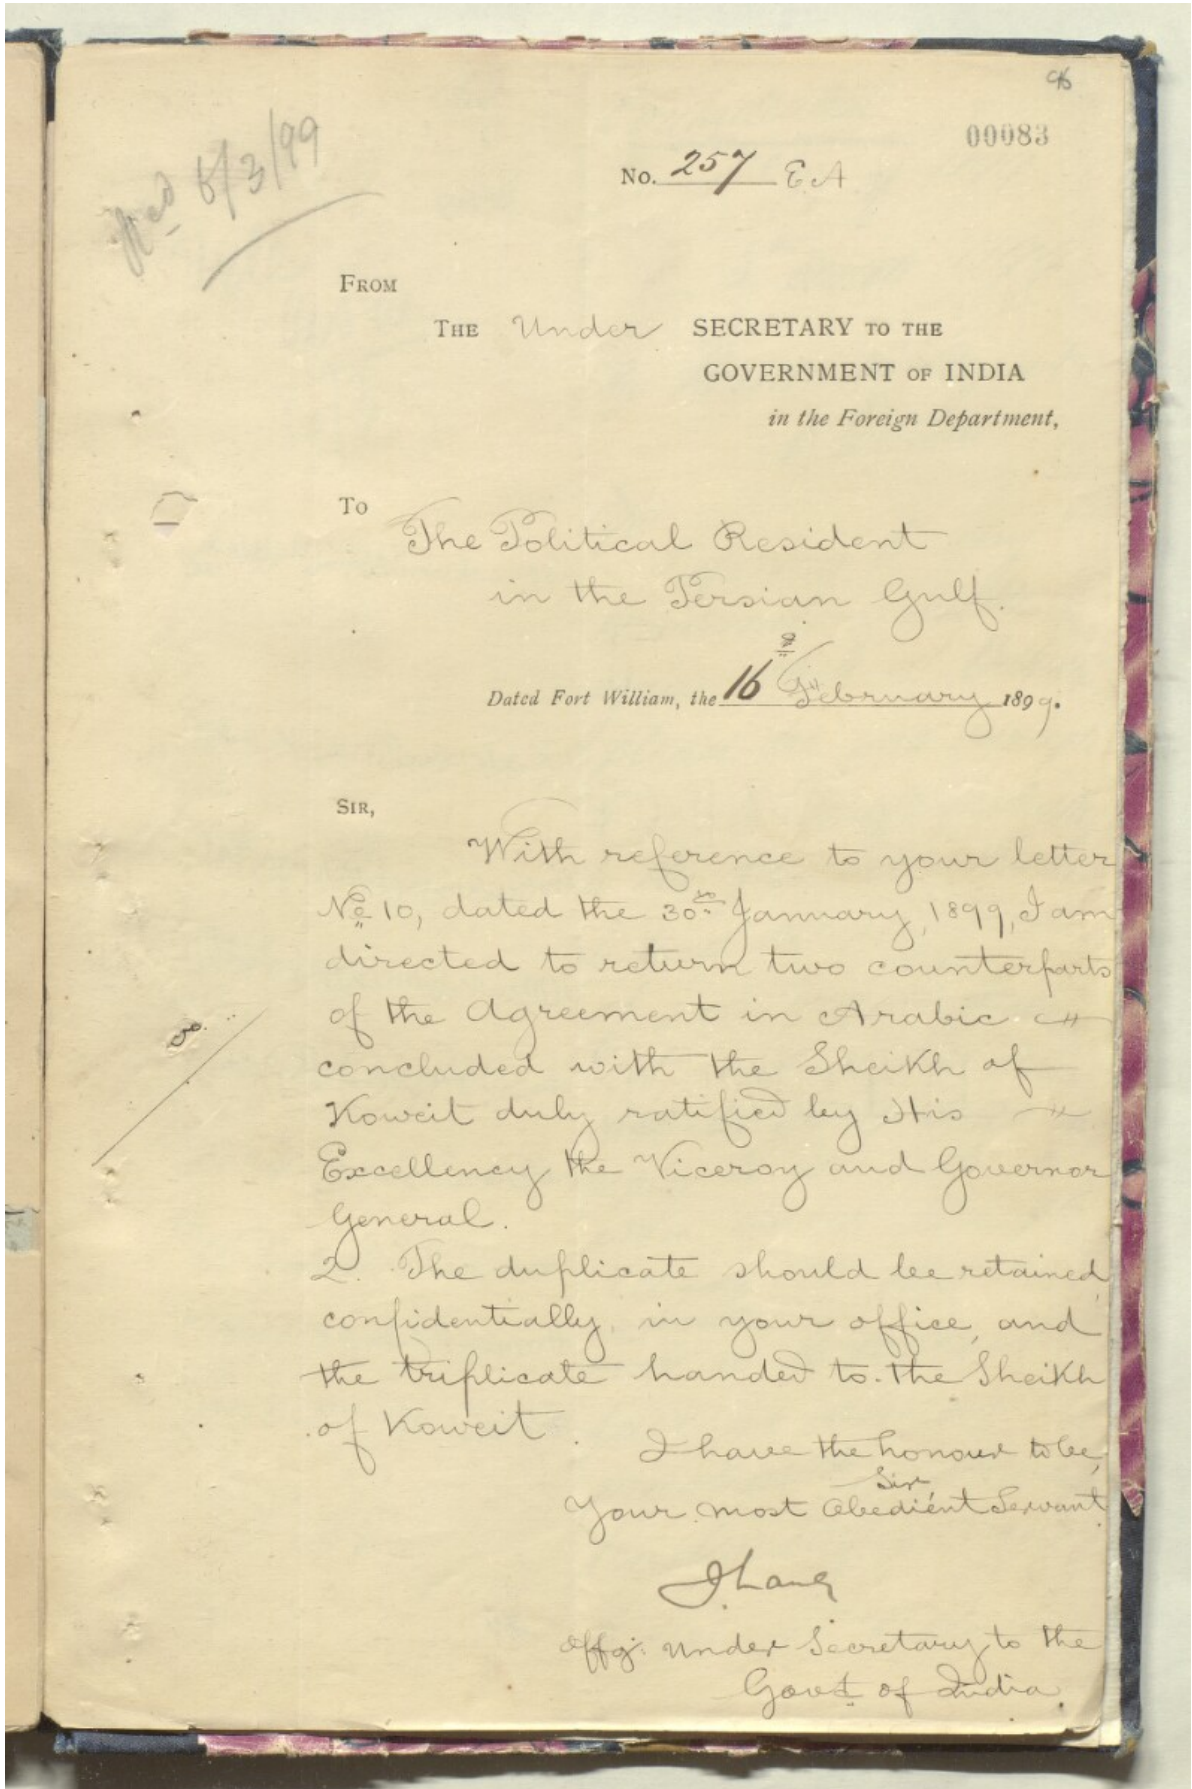 96
00083
No. 257 E A
Recd 6/3/99
FROM
THE Under SECRETARY TO THE
GOVERNMENT OF INDIA
in the Foreign Department,
To
The Political Resident
in the Persian Gulf.
Dated Fort William, the 16th February 1899.
SIR,
With reference to your letter
No 10, dated the 30th January, 1899, I am
directed to return two counterparts
of the Agreement in Arabic
concluded with the Sheikh of
Koweit duly ratified by His
Excellency the Viceroy and Governor
General.
2. The duplicate should be retained,
confidentially, in your office, and
the triplicate handed to the Sheikh
of Koweit.
I have the honour to be,
Sir,
Your most Obedient Servant
Offg: Under Secretary to the
Govt of India.